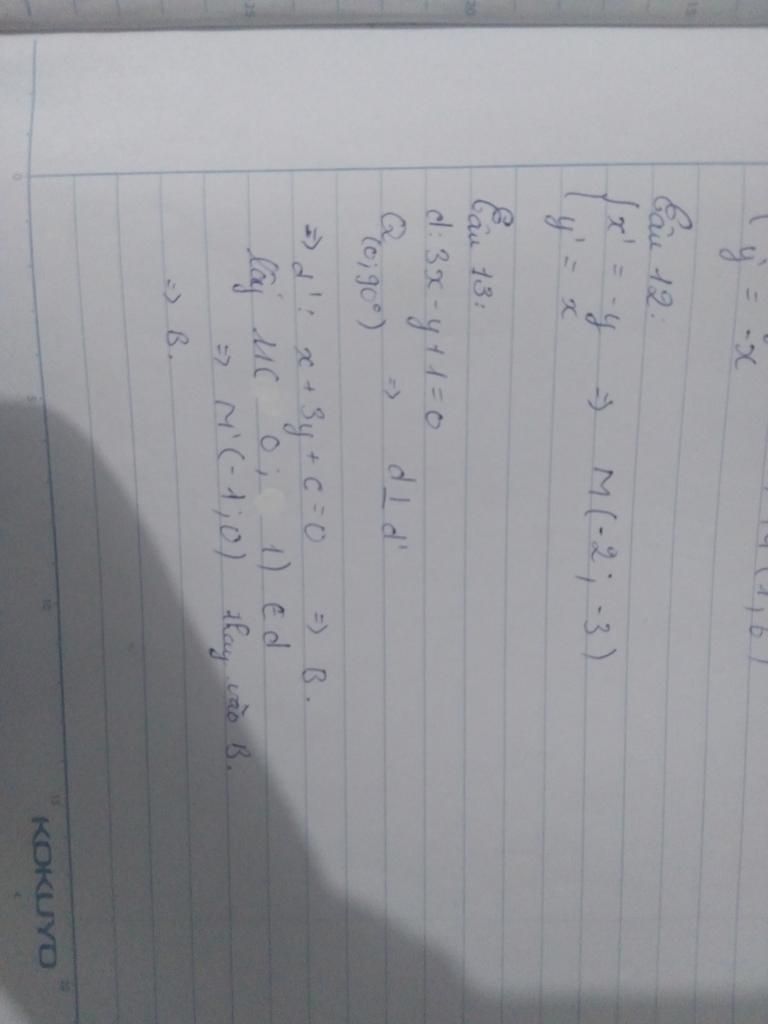 y' = -x
Câu 12:
x' = -y => M(-2; -3)
y' = x
Câu 13:
d: 3x - y + 1 = 0
Q(0; 90°) => d ⊥ d'
=> d': x + 3y + c = 0 => B.
lấy M( 0; 1) ∈ d
=> M'(-1; 0) thay vào B.
=> B.
KOKUYO